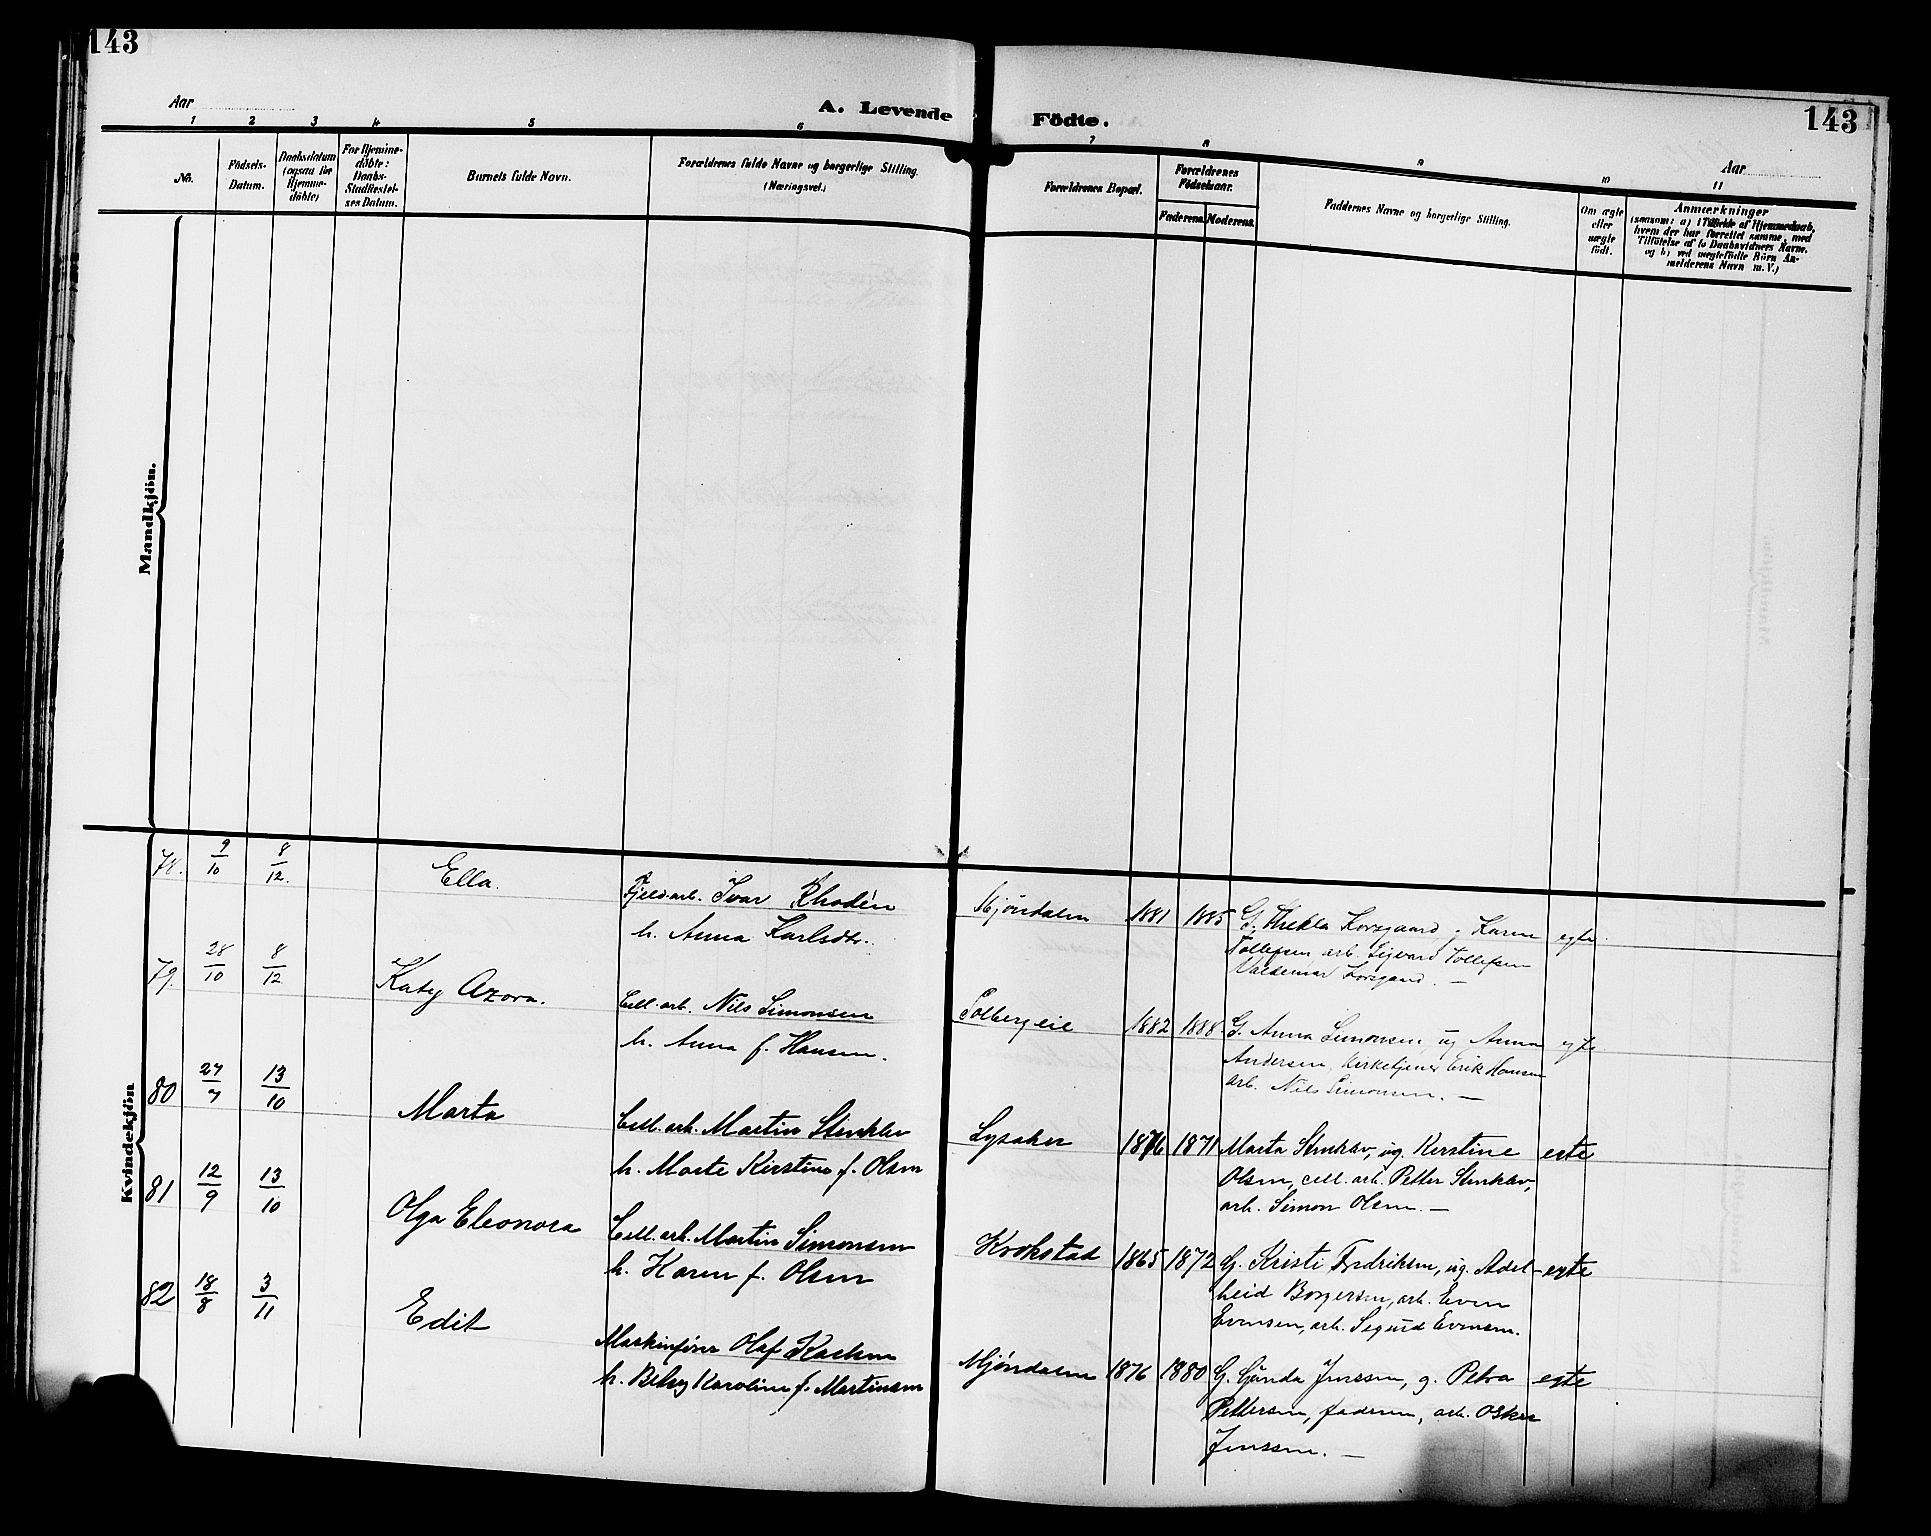 143
143
Aar
A. Levende
Födte.
Aar
1 2 3 4 5 6 7 8 9 10 11
No.
Födsels-
Datum.
Daabsdatum
(ogsaa för
Hjemme-
döbte)
For Hjemme-
döbte:
Daabs-
Stadfæstel-
ses Datum.
Barnets fulde Navn.
Forældrenes fulde Navne og borgerlige Stilling.
(Næringsvei.)
Forældrenes Bopæl.
Forældrenes
Födselsaar.
Faderens.
Moderens.
Faddernes Navne og borgerlige Stilling.
Om ægte
eller
uægte
födt.
Anmærkninger
(saasom: a) i Tilfælde af Hjemmedaab,
hvem der har forrettet samme, med
Tilföielse af to Daabsvidners Navne.
og b) ved uægtefödte Börn An-
melderens Navn m. V.)
Mandkjön.
Kvindekjön
78. 9/10 8/12. Ella. Fjeldarb. Ivar Rhodén
h. Anna Karlsdtr.
Mjöndalen 1881 1885 G. Thekla Korsgaard, g. Karen egte.
Tollefsen arb. Sigvard Tollefsen
Valdemar Korsgaard. —
79. 28/10 8/12 Katy Azora. Cell. arb. Nils Simonsen
h. Anna f. Hansen.
Solbergeie 1882 1888 G. Anna Simonsen, ug Anna egte
Andersen, Kirketjener Erik Hansen
arb. Nils Simonsen. —
80 27/7 13/10 Marta Cell. arb. Martin Stenklev
h. Marte Kirstine f. Olsen
Lysaker 1876 1871 Marta Stenklev, ug. Kirstine egte
Olsen, cell. arb. Petter Stenklev,
arb. Simon Olsen. —
81 12/9 13/10 Olga Eleonora Cell. arb. Martin Simonsen
h. Karen f. Olsen
Krokstad 1865 1872 G. Kristi Fredriksen, ug. Adel- egte
heid Borgersen, arb. Even
Evensen, arb. Sigurd Evensen.
82 18/8 3/11 Edit Maskinfører Olaf
h. Betsy Karoline f. Martinsen
Mjöndalen 1876 1880 G. Gunda Jenssen, g. Petra egte
Pettersen, faderen, arb. Oskar
Jenssen. —